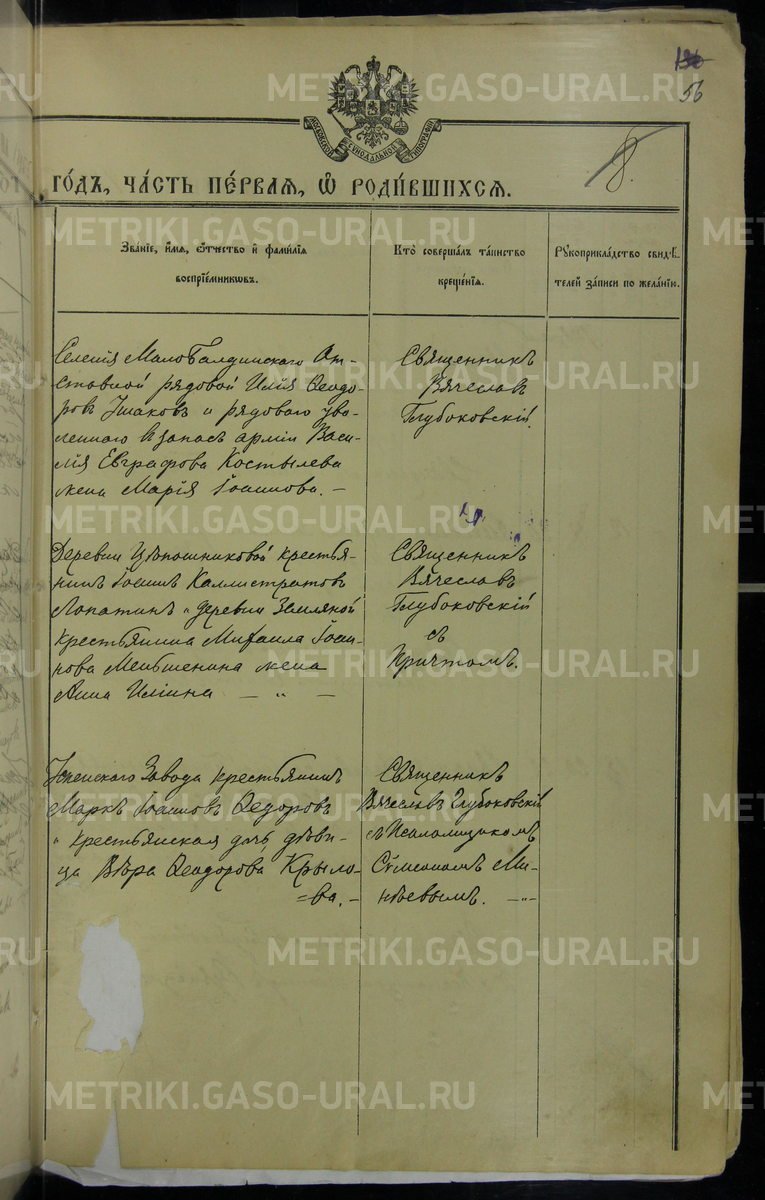 136
56
МОСКОВСКОЙ СѴНОДАЛЬНОЙ ТИПОГРАФІИ
8.
ГО́ДЪ, ЧА́СТЬ ПЕ́РВАЯ, Ѡ РОДИ́ВШИХСЯ.
Зва́нїе, и́мя, о́тчество и҆ фами́лїя
воспрїе́мниковъ.
Кто̀ соверша́лъ та́инство
креще́нїя.
Рꙋкоприкла́дство свидѣ́-
телей за́писи по жела́нїю.
Селенія Мало
ставной рядовой Илія Ѳеодо-
ровъ Ушаковъ и рядового уво-
леннаго въ запасъ арміи Васи-
лія Евграфова Костылева
жена Марія Іоаннова. –
Священникъ
Вячеславъ
Глубоковскій.
Деревни крестья-
нинъ Іоаннъ Каллистратовъ
Лопатинъ и деревни Земляной
крестьянина Михаила Іоан-
нова Меньшенина жена
Анна Иліина — „ —
Священникъ
Вячеславъ
Глубоковскій
съ
Причтомъ.
Успенскаго Завода крестьянинъ
Маркъ Іоанновъ Ѳедоровъ
и крестьянская дочь, дѣви-
ца Вѣра Ѳеодорова Крыло-
=ва. –
Священникъ
Вячеславъ Глубоковскій
съ Псаломщикомъ
Сѵмеономъ Ми-
нѣевымъ. –„–
METRIKI.GASO-URAL.RU